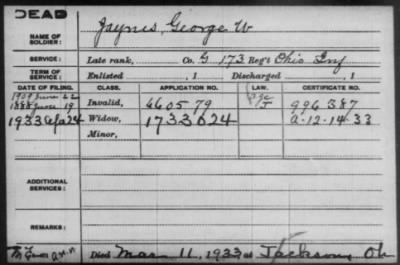 DEAD
NAME OF SOLDIER: Jaynes, George W
SERVICE: Late rank, Co. G 173 Reg't Ohio Inf
TERM OF SERVICE: Enlisted , 1 Discharged , 1
DATE OF FILING. CLASS. APPLICATION NO. LAW. CERTIFICATE NO.
1888 June 19 Invalid, 660579 J 996387
1933 24 Widow, 1733024 a-12-14-33
Minor,
ADDITIONAL SERVICES:
REMARKS:
Died Mar 11, 1933 at Jackson, Oh